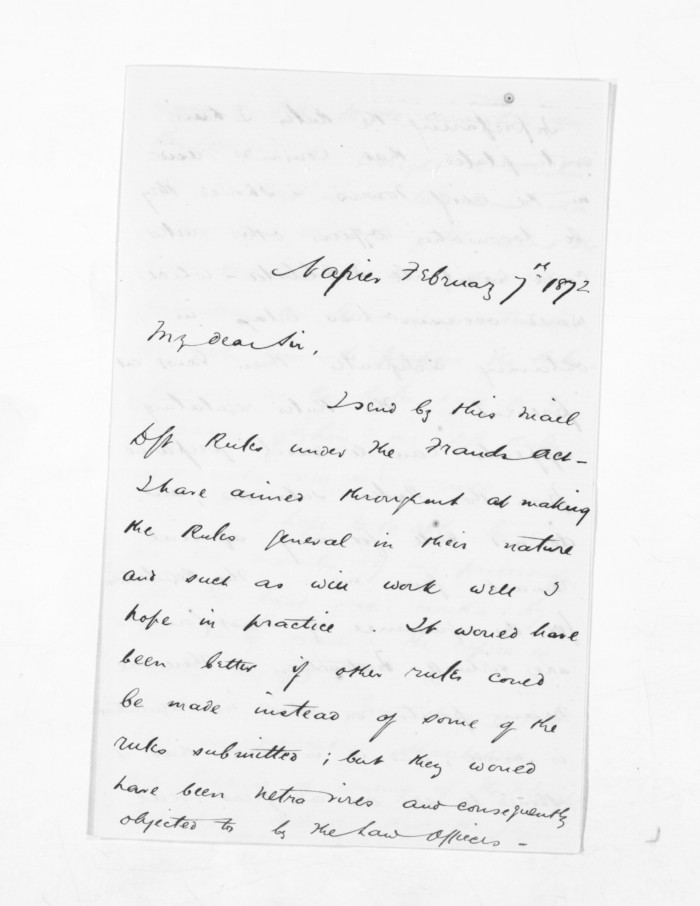 Napier February 7th 1872
My dear Sir,
I send by this mail
Dft Rules under the Frauds Act -
I have aimed throughout at making
the Rules general in their nature
and such as will work well I
hope in practice. It would have
been better if other rules could
be made instead of some of the
rules submitted; but they would
have been ultra vires and consequently
objected to by the Law Officers -